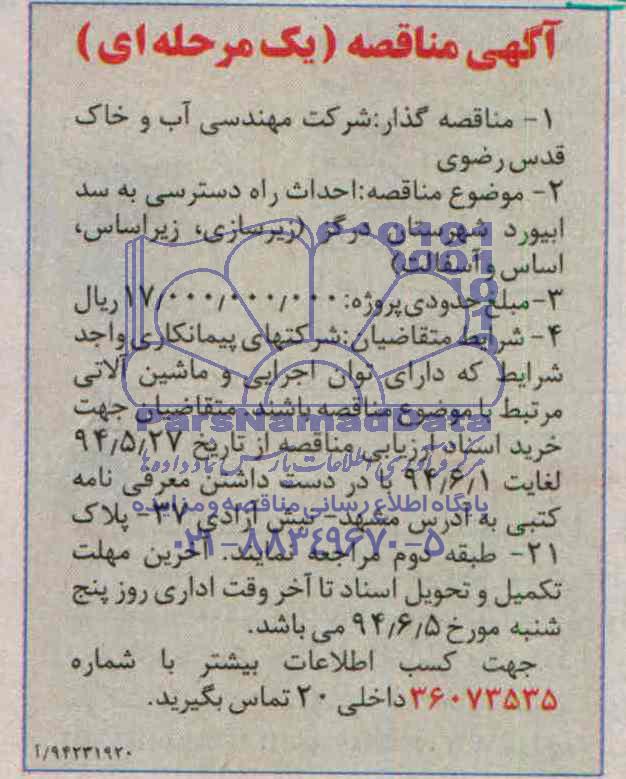 آگهی مناقصه (یک مرحله ای)
۱- مناقصه گذار:شرکت مهندسی آب و خاک
قدس رضوی
۲- موضوع مناقصه:احداث راه دسترسی به سد
ابیورد شهرستان درگز (زیرسازی، زیراساس،
اساس و آسفالت)
۳-مبلغ حدودی پروژه: ۱۷/۰۰۰/۰۰۰/۰۰۰ ریال
۴- شرایط متقاضیان:شرکتهای پیمانکاری واجد
شرایط که دارای توان اجرایی و ماشین آلاتی
مرتبط با موضوع مناقصه باشند. متقاضیان جهت
ParsNamadData
خرید اسناد ارزیابی مناقصه از تاریخ ۹۴/۵/۲۷
مرکز فرآوری اطلاعات پارس نماد داده ها
لغایت ۹۴/۶/۱ با در دست داشتن معرفی نامه
پایگاه اطلاع رسانی مناقصه و مزایده
کتبی به آدرس مشهد- نبش آزادی ۳۷- پلاک
۰۲۱-۸۸۳۴۹۶۷۰-۵
۲۱- طبقه دوم مراجعه نمایند. آخرین مهلت
تکمیل و تحویل اسناد تا آخر وقت اداری روز پنج
شنبه مورخ ۹۴/۶/۵ می باشد.
جهت کسب اطلاعات بیشتر با شماره
۳۶۰۷۳۵۳۵ داخلی ۲۰ تماس بگیرید.
۹۴۲۳۱۹۲۰/آ